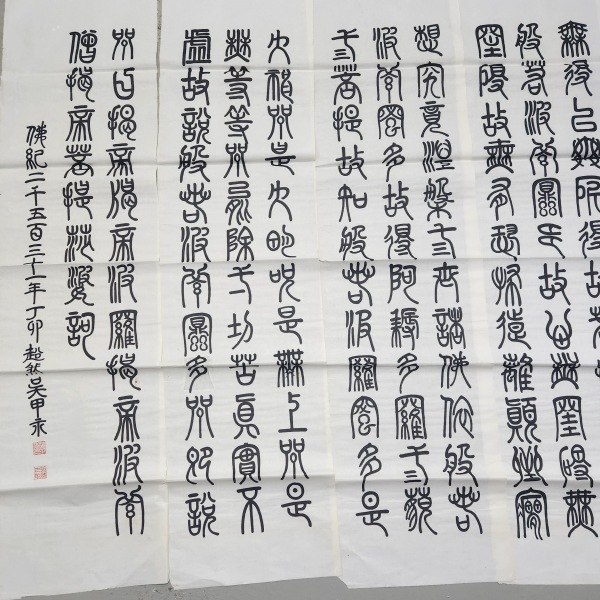 無得以無所得故
般若波羅蜜多故心無罣礙無
罣礙故無有恐怖遠離顛倒夢
想究竟涅槃三世諸佛依般若
波羅蜜多故得阿耨多羅三藐
三菩提故知般若波羅蜜多是
大神咒是大明咒是無上咒是
無等等咒能除一切苦真實不
虛故說般若波羅蜜多咒即說
咒曰揭帝揭帝波羅揭帝波羅
僧揭帝菩提莎婆訶
佛紀二千五百三十一年丁卯超然吴甲永